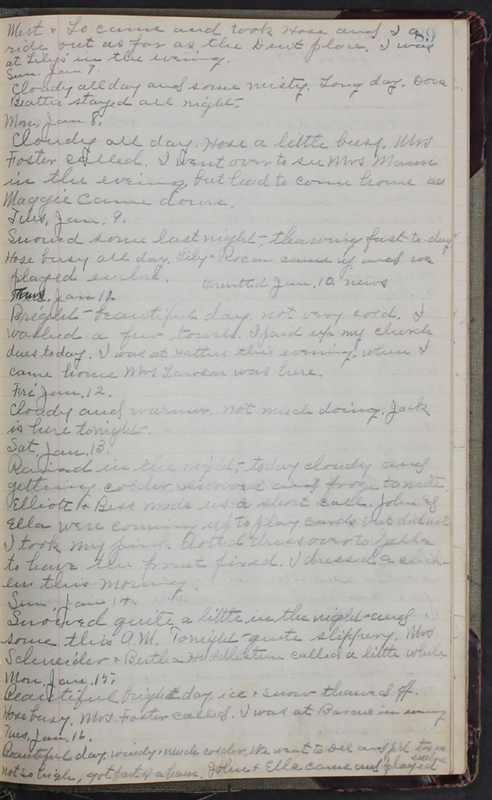 89
Mert & Lo came and took Hose and I a
ride out as far as the Dent place. I was
at Lily's in the evening.
Sun. Jan 7.
Cloudy all day and some misty. Long day. Dora
Beattie stayed all night.
Mon. Jan 8.
Cloudy all day. Hose a little busy. Mrs
Foster called. I went over to see Mrs. Mann
in the evening, but had to come home as
Maggie came down.
Tues, Jan. 9.
Snowed some last night, thawing fast to day
Hose busy all day. Lily & came up and we
played euchre. Omitted Jan. 10 news
Thurs. Jan 11.
Bright - beautiful day, not very cold. I
washed a few towels. I paid up my church
dues today. I was at Hattie's this evening, when I
came home Mrs Lawson was here.
Fri Jan. 12.
Cloudy and warmer. not much doing. Jack
is here tonight.
Sat, Jan. 13.
Rained in the night, today cloudy and
getting colder, snowed and froze to nite
Elliott & Bess made us a short call. John &
Ella were coming up to play cards but did not
I took my pink dotted dress over to
to have the front fixed. I dressed a chick-
en this morning.
Sun, Jan 14.
Snowed quite a little in the night and
some this A.M. Tonight quite slippery. Mrs
Schneider & Bertha Huddleston called a little while
Mon. Jan. 15.
Beautiful bright day, ice & snow thawed off.
Hose busy, Mrs Foster called. I was at in evening
Tues, Jan. 16.
Beautiful day, windy & much colder. We went to and
not so high, got part of a hame. John & Ella came and played